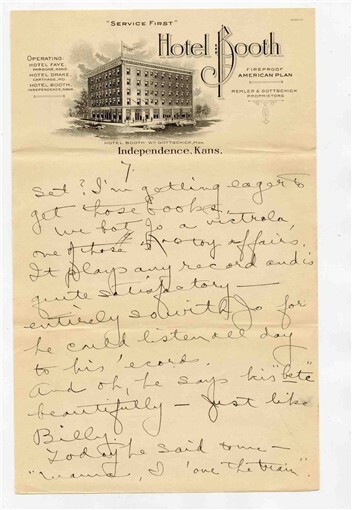 "SERVICE FIRST"
Hotel Booth
OPERATING:
HOTEL FAYE
PARSONS, KANS.
HOTEL DRAKE
CARTHAGE, MO.
HOTEL BOOTH,
INDEPENDENCE, KANS.
FIREPROOF
AMERICAN PLAN
& GOTTSCHICK
PROPRIETORS
HOTEL BOOTH W? GOTTSCHICK, MGR.
Independence, Kans.
7.
set? I'm getting eager to
get those books.
We bot Jo a victrola,
one of those toy affairs.
It plays any record and is
quite satisfactory —
entirely so with Jo for
he could listen all day
to his 'ecords.
And oh, he says his
beautifully — just like
Billy.
Today he said to me —
"mama, I 'ove the train".